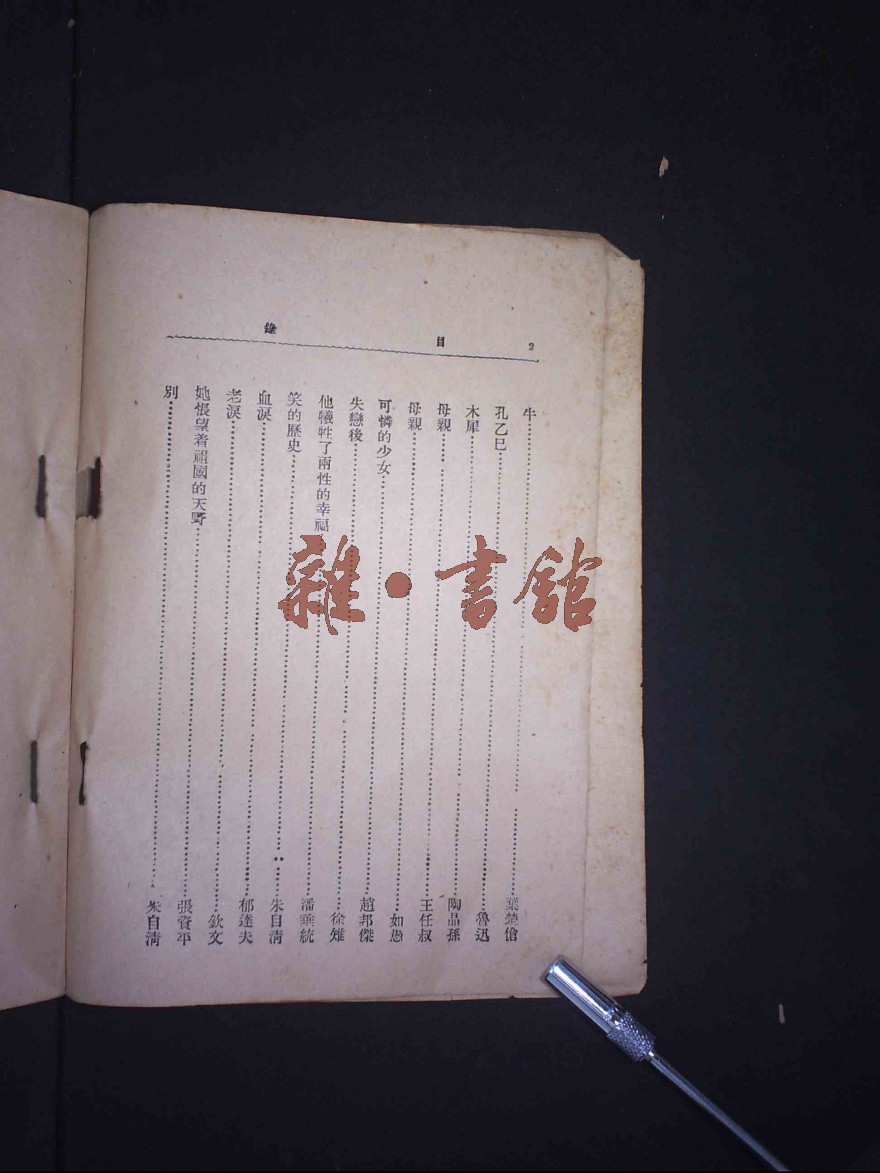 2 目 錄
牛……葉楚傖
孔乙己……魯迅
木犀……陶晶孫
母親……王任叔
母親……如
可憐的少女……趙邦傑
失戀後……徐雉
他犧牲了兩性的幸福……潘垂統
笑的歷史……朱自清
血淚……郁達夫
老淚……欽文
她悵望着祖國的天野……張資平
別……朱自清
雜·書舘